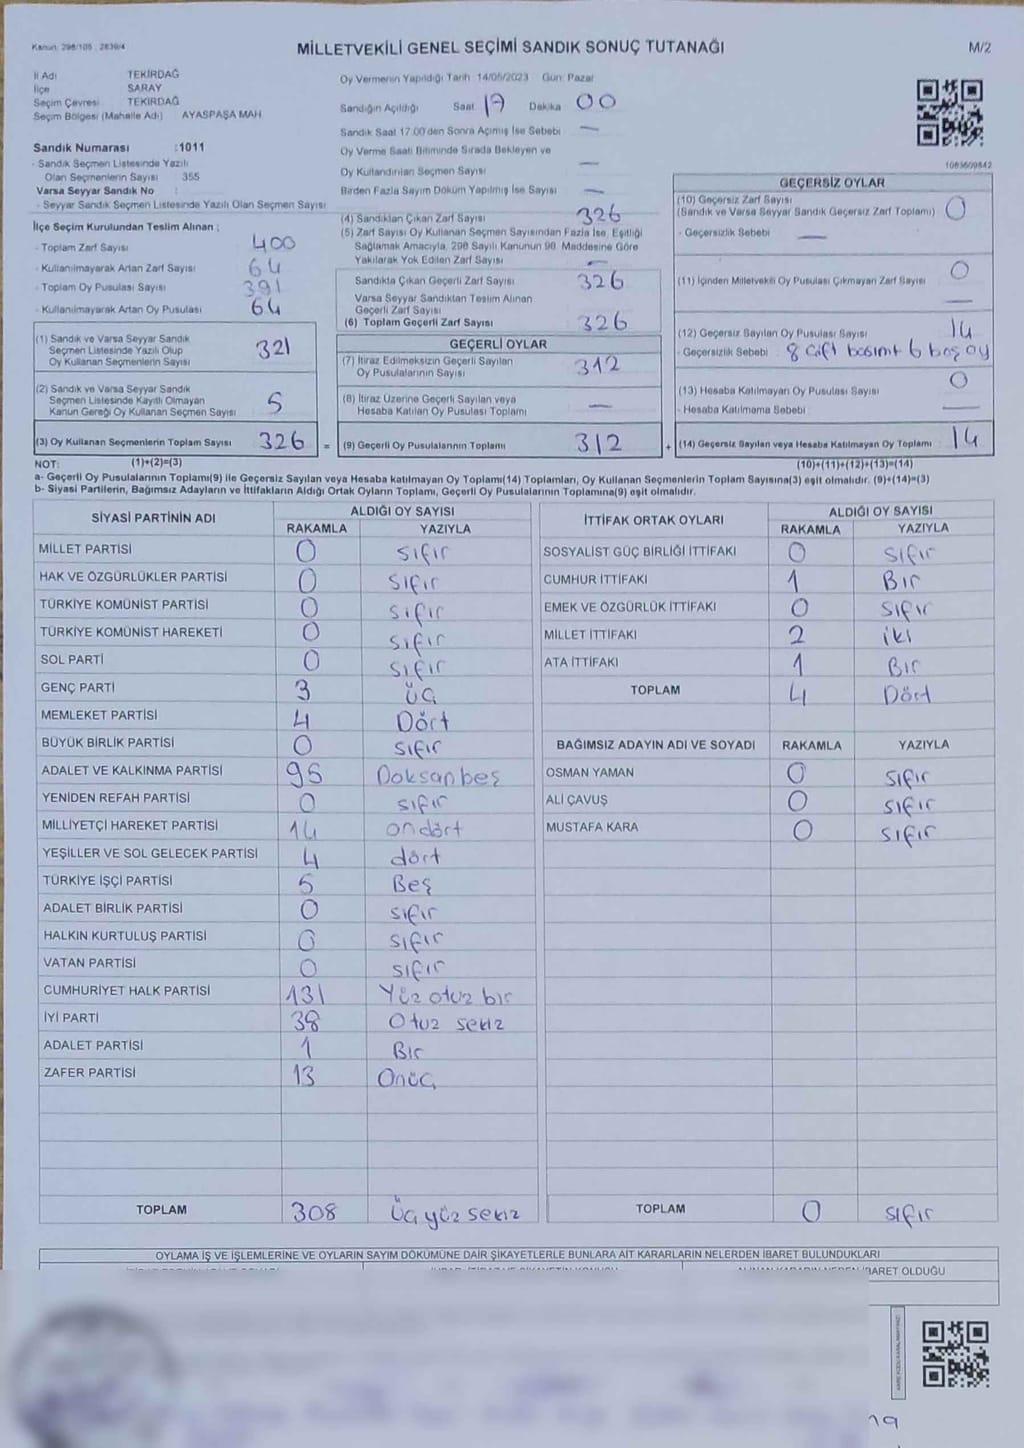 Kanun: 298/105 ; 2839/4
MİLLETVEKİLİ GENEL SEÇİMİ SANDIK SONUÇ TUTANAĞI
M/2
İl Adı TEKİRDAĞ
İlçe SARAY
Seçim Çevresi TEKİRDAĞ
Seçim Bölgesi (Mahalle Adı) AYASPAŞA MAH
Sandık Numarası :1011
- Sandık Seçmen Listesinde Yazılı
Olan Seçmenlerin Sayısı 355
Varsa Seyyar Sandık No :
- Seyyar Sandık Seçmen Listesinde Yazılı Olan Seçmen Sayısı
İlçe Seçim Kurulundan Teslim Alınan ;
- Toplam Zarf Sayısı 400
- Kullanılmayarak Artan Zarf Sayısı 64
- Toplam Oy Pusulası Sayısı 391
- Kullanılmayarak Artan Oy Pusulası 64
(1) Sandık ve Varsa Seyyar Sandık
Seçmen Listesinde Yazılı Olup
Oy Kullanan Seçmenlerin Sayısı 321
(2) Sandık ve Varsa Seyyar Sandık
Seçmen Listesinde Kayıtlı Olmayan
Kanun Gereği Oy Kullanan Seçmen Sayısı 5
(3) Oy Kullanan Seçmenlerin Toplam Sayısı 326 =
Oy Vermenin Yapıldığı Tarih 14/05/2023 Gün: Pazar
Sandığın Açıldığı Saat 17 Dakika 00
Sandık Saat 17.00'den Sonra Açımış İse Sebebi —
Oy Verme Saati Bitiminde Sırada Bekleyen ve
Oy Kullandırılan Seçmen Sayısı —
Birden Fazla Sayım Döküm Yapılmış İse Sayısı —
(4) Sandıktan Çıkan Zarf Sayısı 326
(5) Zarf Sayısı Oy Kullanan Seçmen Sayısından Fazla İse, Eşitliği
Sağlamak Amacıyla, 298 Sayılı Kanunun 98. Maddesine Göre
Yakılarak Yok Edilen Zarf Sayısı —
Sandıkta Çıkan Geçerli Zarf Sayısı 326
Varsa Seyyar Sandıktan Teslim Alınan
Geçerli Zarf Sayısı
(6) Toplam Geçerli Zarf Sayısı 326
GEÇERLİ OYLAR
(7) İtiraz Edilmeksizin Geçerli Sayılan
Oy Pusulalarının Sayısı 312
(8) İtiraz Üzerine Geçerli Sayılan veya
Hesaba Katılan Oy Pusulası Toplamı —
(9) Geçerli Oy Pusulalarının Toplamı 312 +
1083609842
GEÇERSİZ OYLAR
(10) Geçersiz Zarf Sayısı
(Sandık ve Varsa Seyyar Sandık Geçersiz Zarf Toplamı) 0
- Geçersizlik Sebebi —
(11) İçinden Milletvekili Oy Pusulası Çıkmayan Zarf Sayısı 0
—
(12) Geçersiz Sayılan Oy Pusulası Sayısı 14
- Geçersizlik Sebebi : 8 Çift basım+ 6 boş oy
(13) Hesaba Katılmayan Oy Pusulası Sayısı 0
- Hesaba Katılmama Sebebi —
(14) Geçersiz Sayılan veya Hesaba Katılmayan Oy Toplamı 14
NOT: (1)+(2)=(3) (10)+(11)+(12)+(13)=(14)
a- Geçerli Oy Pusulalarının Toplamı(9) ile Geçersiz Sayılan veya Hesaba katılmayan Oy Toplamı(14) Toplamları, Oy Kullanan Seçmenlerin Toplam Sayısına(3) eşit olmalıdır. (9)+(14)=(3)
b- Siyasi Partilerin, Bağımsız Adayların ve İttifakların Aldığı Ortak Oyların Toplamı, Geçerli Oy Pusulalarının Toplamına(9) eşit olmalıdır.
SİYASİ PARTİNİN ADI ALDIĞI OY SAYISI
RAKAMLA YAZIYLA
MİLLET PARTİSİ 0 sıfır
HAK VE ÖZGÜRLÜKLER PARTİSİ 0 sıfır
TÜRKİYE KOMÜNİST PARTİSİ 0 sıfır
TÜRKİYE KOMÜNİST HAREKETİ 0 sıfır
SOL PARTİ 0 sıfır
GENÇ PARTİ 3 üç
MEMLEKET PARTİSİ 4 Dört
BÜYÜK BİRLİK PARTİSİ 0 sıfır
ADALET VE KALKINMA PARTİSİ 95 Doksan beş
YENİDEN REFAH PARTİSİ 0 sıfır
MİLLİYETÇİ HAREKET PARTİSİ 14 ondört
YEŞİLLER VE SOL GELECEK PARTİSİ 4 dört
TÜRKİYE İŞÇİ PARTİSİ 5 Beş
ADALET BİRLİK PARTİSİ 0 sıfır
HALKIN KURTULUŞ PARTİSİ 0 sıfır
VATAN PARTİSİ 0 sıfır
CUMHURİYET HALK PARTİSİ 131 Yüz otuz bir
İYİ PARTİ 38 Otuz sekiz
ADALET PARTİSİ 1 Bir
ZAFER PARTİSİ 13 Onüç
TOPLAM 308 Üç yüz sekiz
İTTİFAK ORTAK OYLARI ALDIĞI OY SAYISI
RAKAMLA YAZIYLA
SOSYALİST GÜÇ BİRLİĞİ İTTİFAKI 0 sıfır
CUMHUR İTTİFAKI 1 Bir
EMEK VE ÖZGÜRLÜK İTTİFAKI 0 sıfır
MİLLET İTTİFAKI 2 iki
ATA İTTİFAKI 1 Bir
TOPLAM 4 Dört
BAĞIMSIZ ADAYIN ADI VE SOYADI RAKAMLA YAZIYLA
OSMAN YAMAN 0 sıfır
ALİ ÇAVUŞ 0 sıfır
MUSTAFA KARA 0 sıfır
TOPLAM 0 sıfır
OYLAMA İŞ VE İŞLEMLERİNE VE OYLARIN SAYIM DÖKÜMÜNE DAİR ŞİKAYETLERLE BUNLARA AİT KARARLARIN NELERDEN İBARET BULUNDUKLARI
BARET OLDUĞU